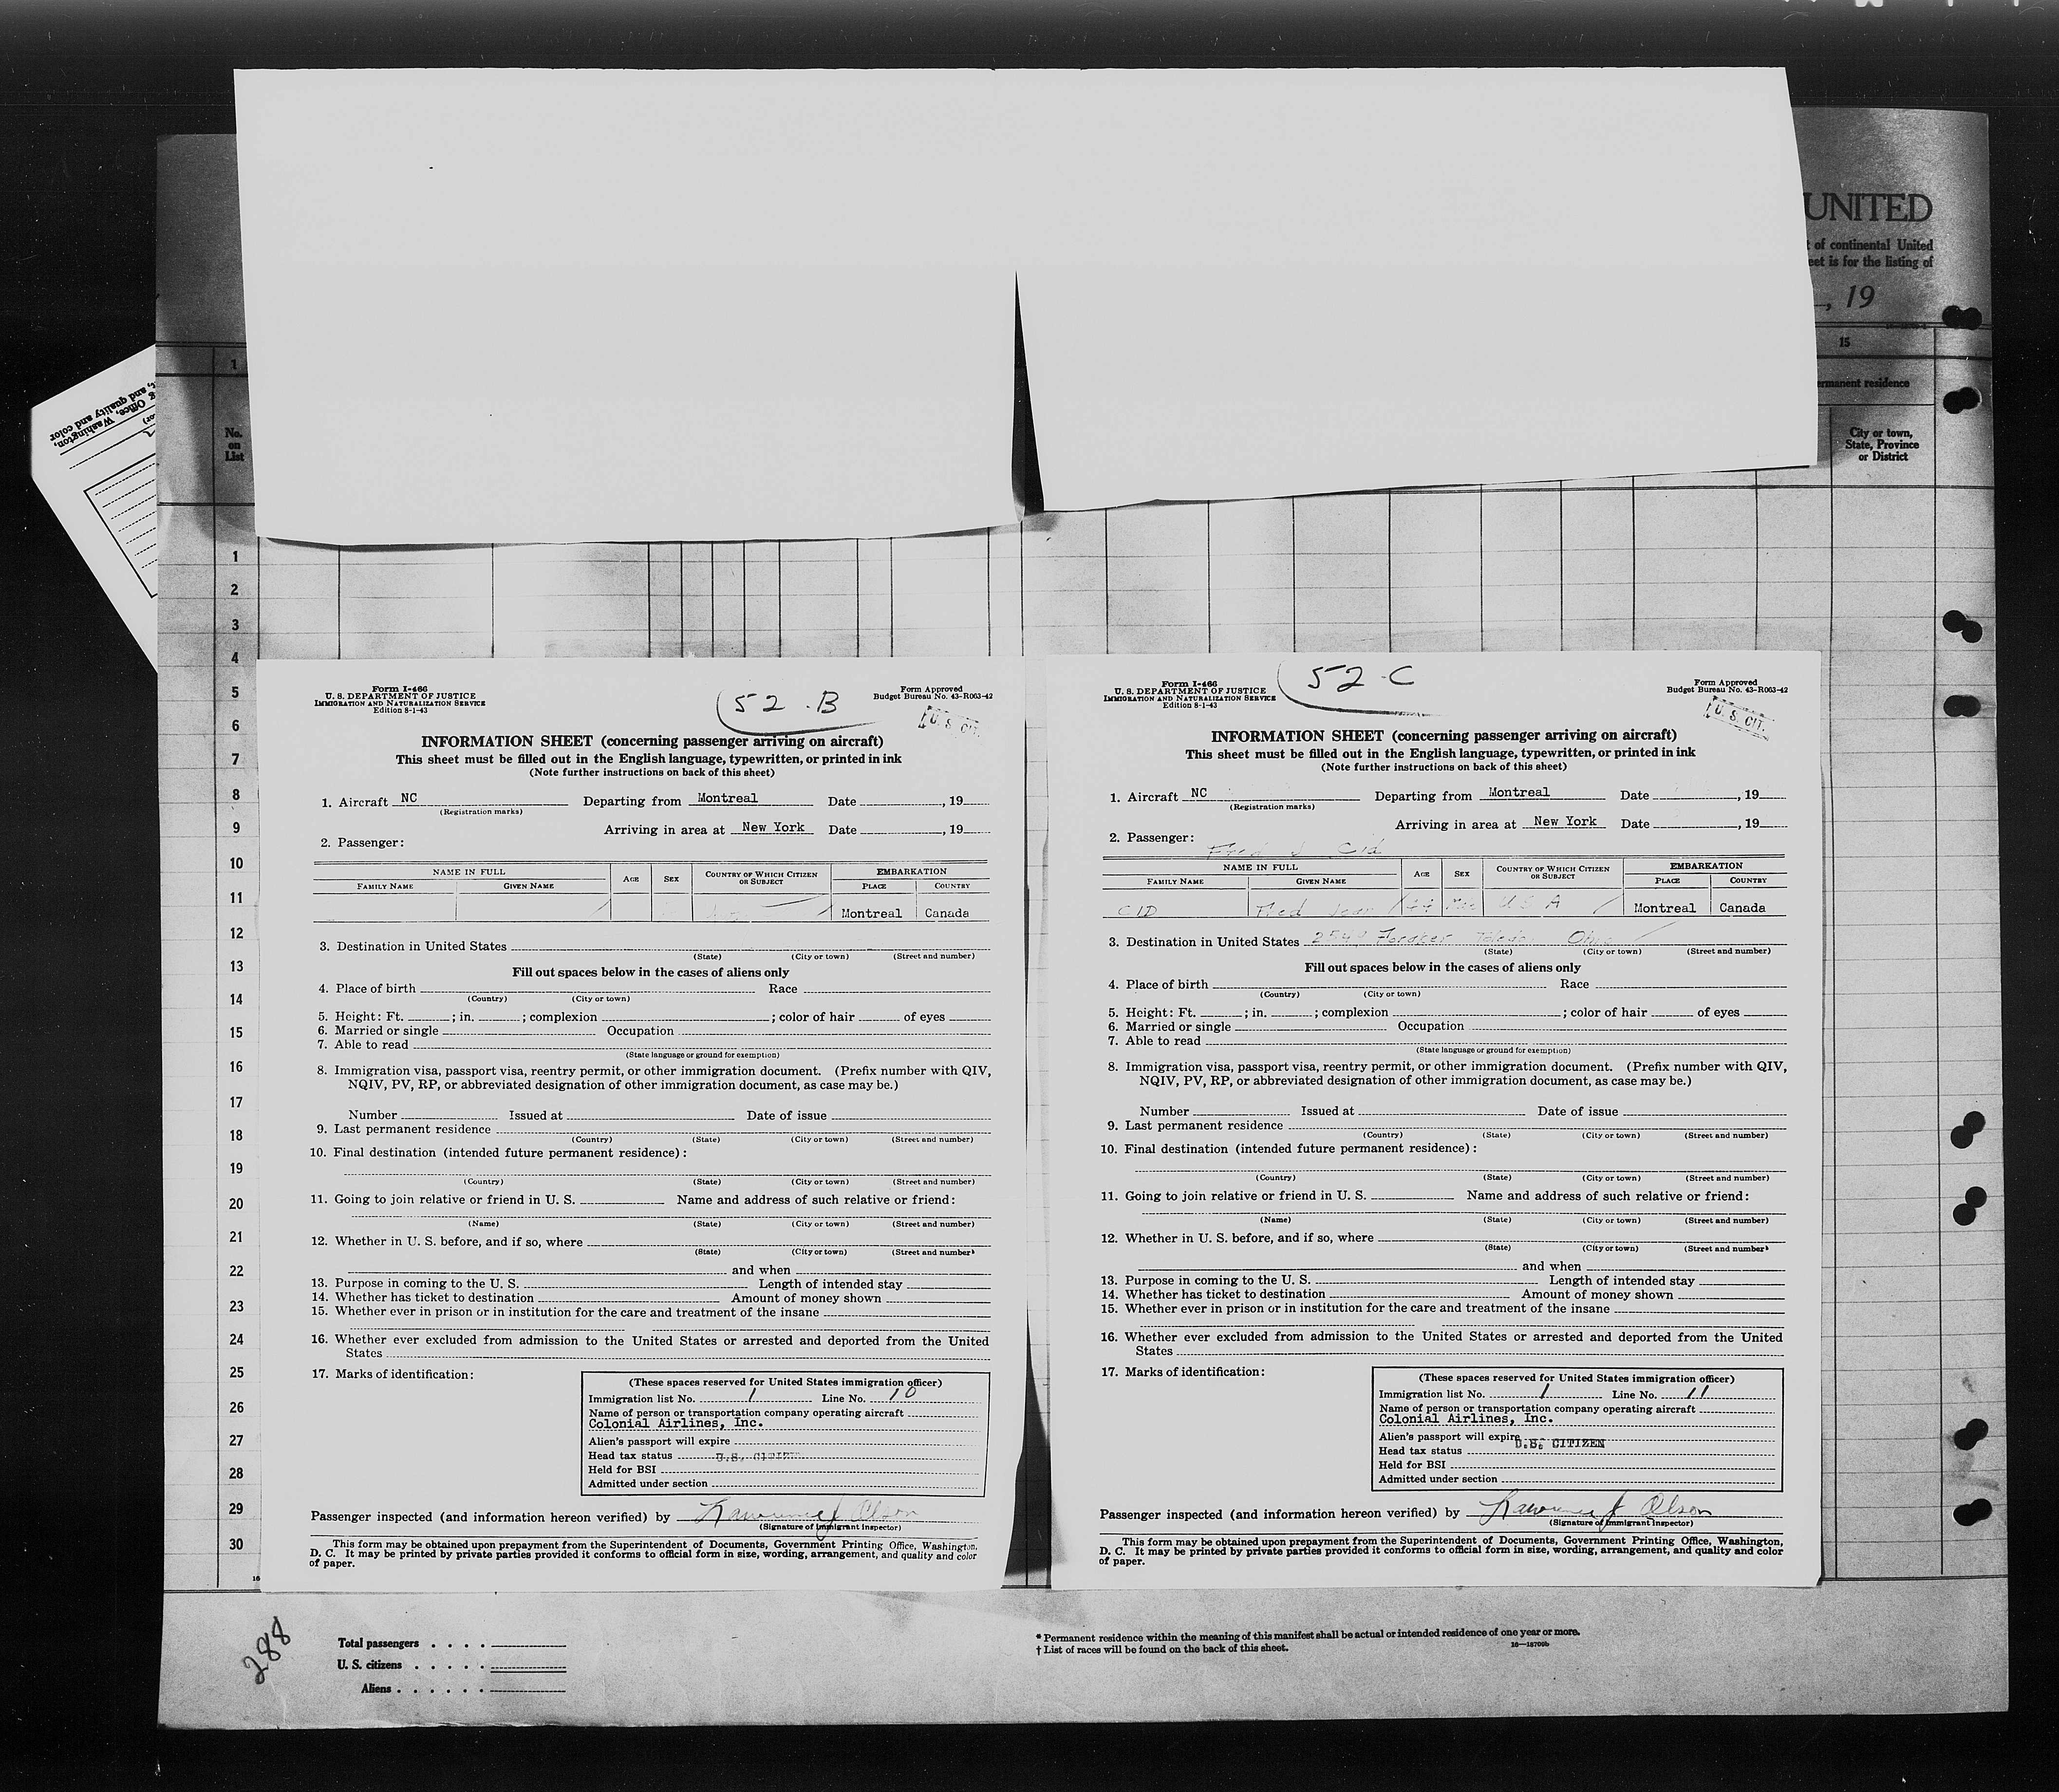 UNITED
t of continental United
eet is for the listing of
, 19
15
ermanent residence
City or town,
State, Province
or District
1
No.
on
List
Office, Washington,
and quality and
color
1
2
3
4
5
6
7
8
9
10
11
12
13
14
15
16
17
18
19
20
21
22
23
24
25
26
27
28
29
30
Form I-466
U. S. DEPARTMENT OF JUSTICE
IMMIGRATION AND NATURALIZATION SERVICE
Edition 8-1-43
52 . B
Form Approved
Budget Bureau No. 43-R063-42
U. S. CIT.
INFORMATION SHEET (concerning passenger arriving on aircraft)
This sheet must be filled out in the English language, typewritten, or printed in ink
(Note further instructions on back of this sheet)
1. Aircraft NC Departing from Montreal Date , 19
(Registration marks)
Arriving in area at New York Date , 19
2. Passenger:
NAME IN FULL AGE SEX COUNTRY OF WHICH CITIZEN OR SUBJECT EMBARKATION
FAMILY NAME GIVEN NAME PLACE COUNTRY
Montreal Canada
3. Destination in United States
(State) (City or town) (Street and number)
Fill out spaces below in the cases of aliens only
4. Place of birth Race
(Country) (City or town)
5. Height: Ft. ; in. ; complexion ; color of hair of eyes
6. Married or single Occupation
7. Able to read
(State language or ground for exemption)
8. Immigration visa, passport visa, reentry permit, or other immigration document. (Prefix number with QIV,
NQIV, PV, RP, or abbreviated designation of other immigration document, as case may be.)
Number Issued at Date of issue
9. Last permanent residence
(Country) (State) (City or town) (Street and number)
10. Final destination (intended future permanent residence):
(Country) (State) (City or town) (Street and number)
11. Going to join relative or friend in U. S. Name and address of such relative or friend:
(Name) (State) (City or town) (Street and number)
12. Whether in U. S. before, and if so, where
(State) (City or town) (Street and number)
and when
13. Purpose in coming to the U. S. Length of intended stay
14. Whether has ticket to destination Amount of money shown
15. Whether ever in prison or in institution for the care and treatment of the insane
16. Whether ever excluded from admission to the United States or arrested and deported from the United
States
17. Marks of identification:
(These spaces reserved for United States immigration officer)
Immigration list No. 1 Line No. 10
Name of person or transportation company operating aircraft
Colonial Airlines, Inc.
Alien's passport will expire
Head tax status U.S. CITIZEN
Held for BSI
Admitted under section
Passenger inspected (and information hereon verified) by Lawrence J Olson
(Signature of Immigrant Inspector)
This form may be obtained upon prepayment from the Superintendent of Documents, Government Printing Office, Washington,
D. C. It may be printed by private parties provided it conforms to official form in size, wording, arrangement, and quality and color
of paper.
16
Form I-466
U. S. DEPARTMENT OF JUSTICE
IMMIGRATION AND NATURALIZATION SERVICE
Edition 8-1-43
52 . C
Form Approved
Budget Bureau No. 43-R063-42
U. S. CIT.
INFORMATION SHEET (concerning passenger arriving on aircraft)
This sheet must be filled out in the English language, typewritten, or printed in ink
(Note further instructions on back of this sheet)
1. Aircraft NC Departing from Montreal Date , 19
(Registration marks)
Arriving in area at New York Date , 19
2. Passenger:
Fred J Cid
NAME IN FULL AGE SEX COUNTRY OF WHICH CITIZEN OR SUBJECT EMBARKATION
FAMILY NAME GIVEN NAME PLACE COUNTRY
CID Fred Jean 44 U S A Montreal Canada
3. Destination in United States Foraker Toledo Ohio
(State) (City or town) (Street and number)
Fill out spaces below in the cases of aliens only
4. Place of birth Race
(Country) (City or town)
5. Height: Ft. ; in. ; complexion ; color of hair of eyes
6. Married or single Occupation
7. Able to read
(State language or ground for exemption)
8. Immigration visa, passport visa, reentry permit, or other immigration document. (Prefix number with QIV,
NQIV, PV, RP, or abbreviated designation of other immigration document, as case may be.)
Number Issued at Date of issue
9. Last permanent residence
(Country) (State) (City or town) (Street and number)
10. Final destination (intended future permanent residence):
(Country) (State) (City or town) (Street and number)
11. Going to join relative or friend in U. S. Name and address of such relative or friend:
(Name) (State) (City or town) (Street and number)
12. Whether in U. S. before, and if so, where
(State) (City or town) (Street and number)
and when
13. Purpose in coming to the U. S. Length of intended stay
14. Whether has ticket to destination Amount of money shown
15. Whether ever in prison or in institution for the care and treatment of the insane
16. Whether ever excluded from admission to the United States or arrested and deported from the United
States
17. Marks of identification:
(These spaces reserved for United States immigration officer)
Immigration list No. 1 Line No. 11
Name of person or transportation company operating aircraft
Colonial Airlines, Inc.
Alien's passport will expire
U.S. CITIZEN
Head tax status
Held for BSI
Admitted under section
Passenger inspected (and information hereon verified) by Lawrence J Olson
(Signature of Immigrant Inspector)
This form may be obtained upon prepayment from the Superintendent of Documents, Government Printing Office, Washington,
D. C. It may be printed by private parties provided it conforms to official form in size, wording, arrangement, and quality and color
of paper.
288
Total passengers . . . .
U. S. citizens . . . . .
Aliens . . . . . .
* Permanent residence within the meaning of this manifest shall be actual or intended residence of one year or more.
† List of races will be found on the back of this sheet.